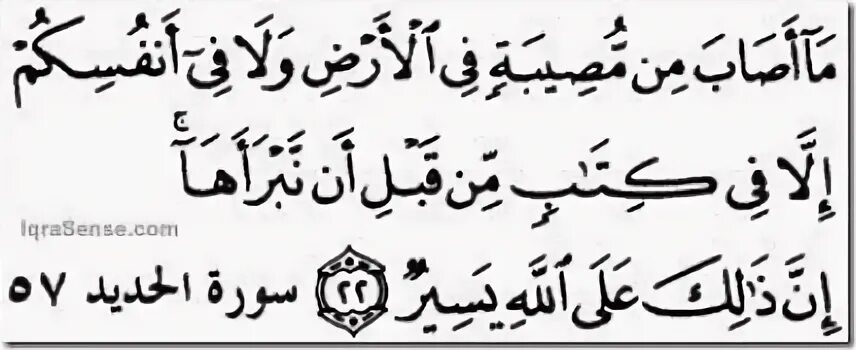 مَآ أَصَابَ مِن مُّصِيبَةٍ فِى ٱلْأَرْضِ وَلَا فِىٓ أَنفُسِكُمْ
إِلَّا فِى كِتَٰبٍ مِّن قَبْلِ أَن نَّبْرَأَهَآ ۚ
IqraSense.com
إِنَّ ذَٰلِكَ عَلَى ٱللَّهِ يَسِيرٌ ٢٢ سورة الحديد ٥٧